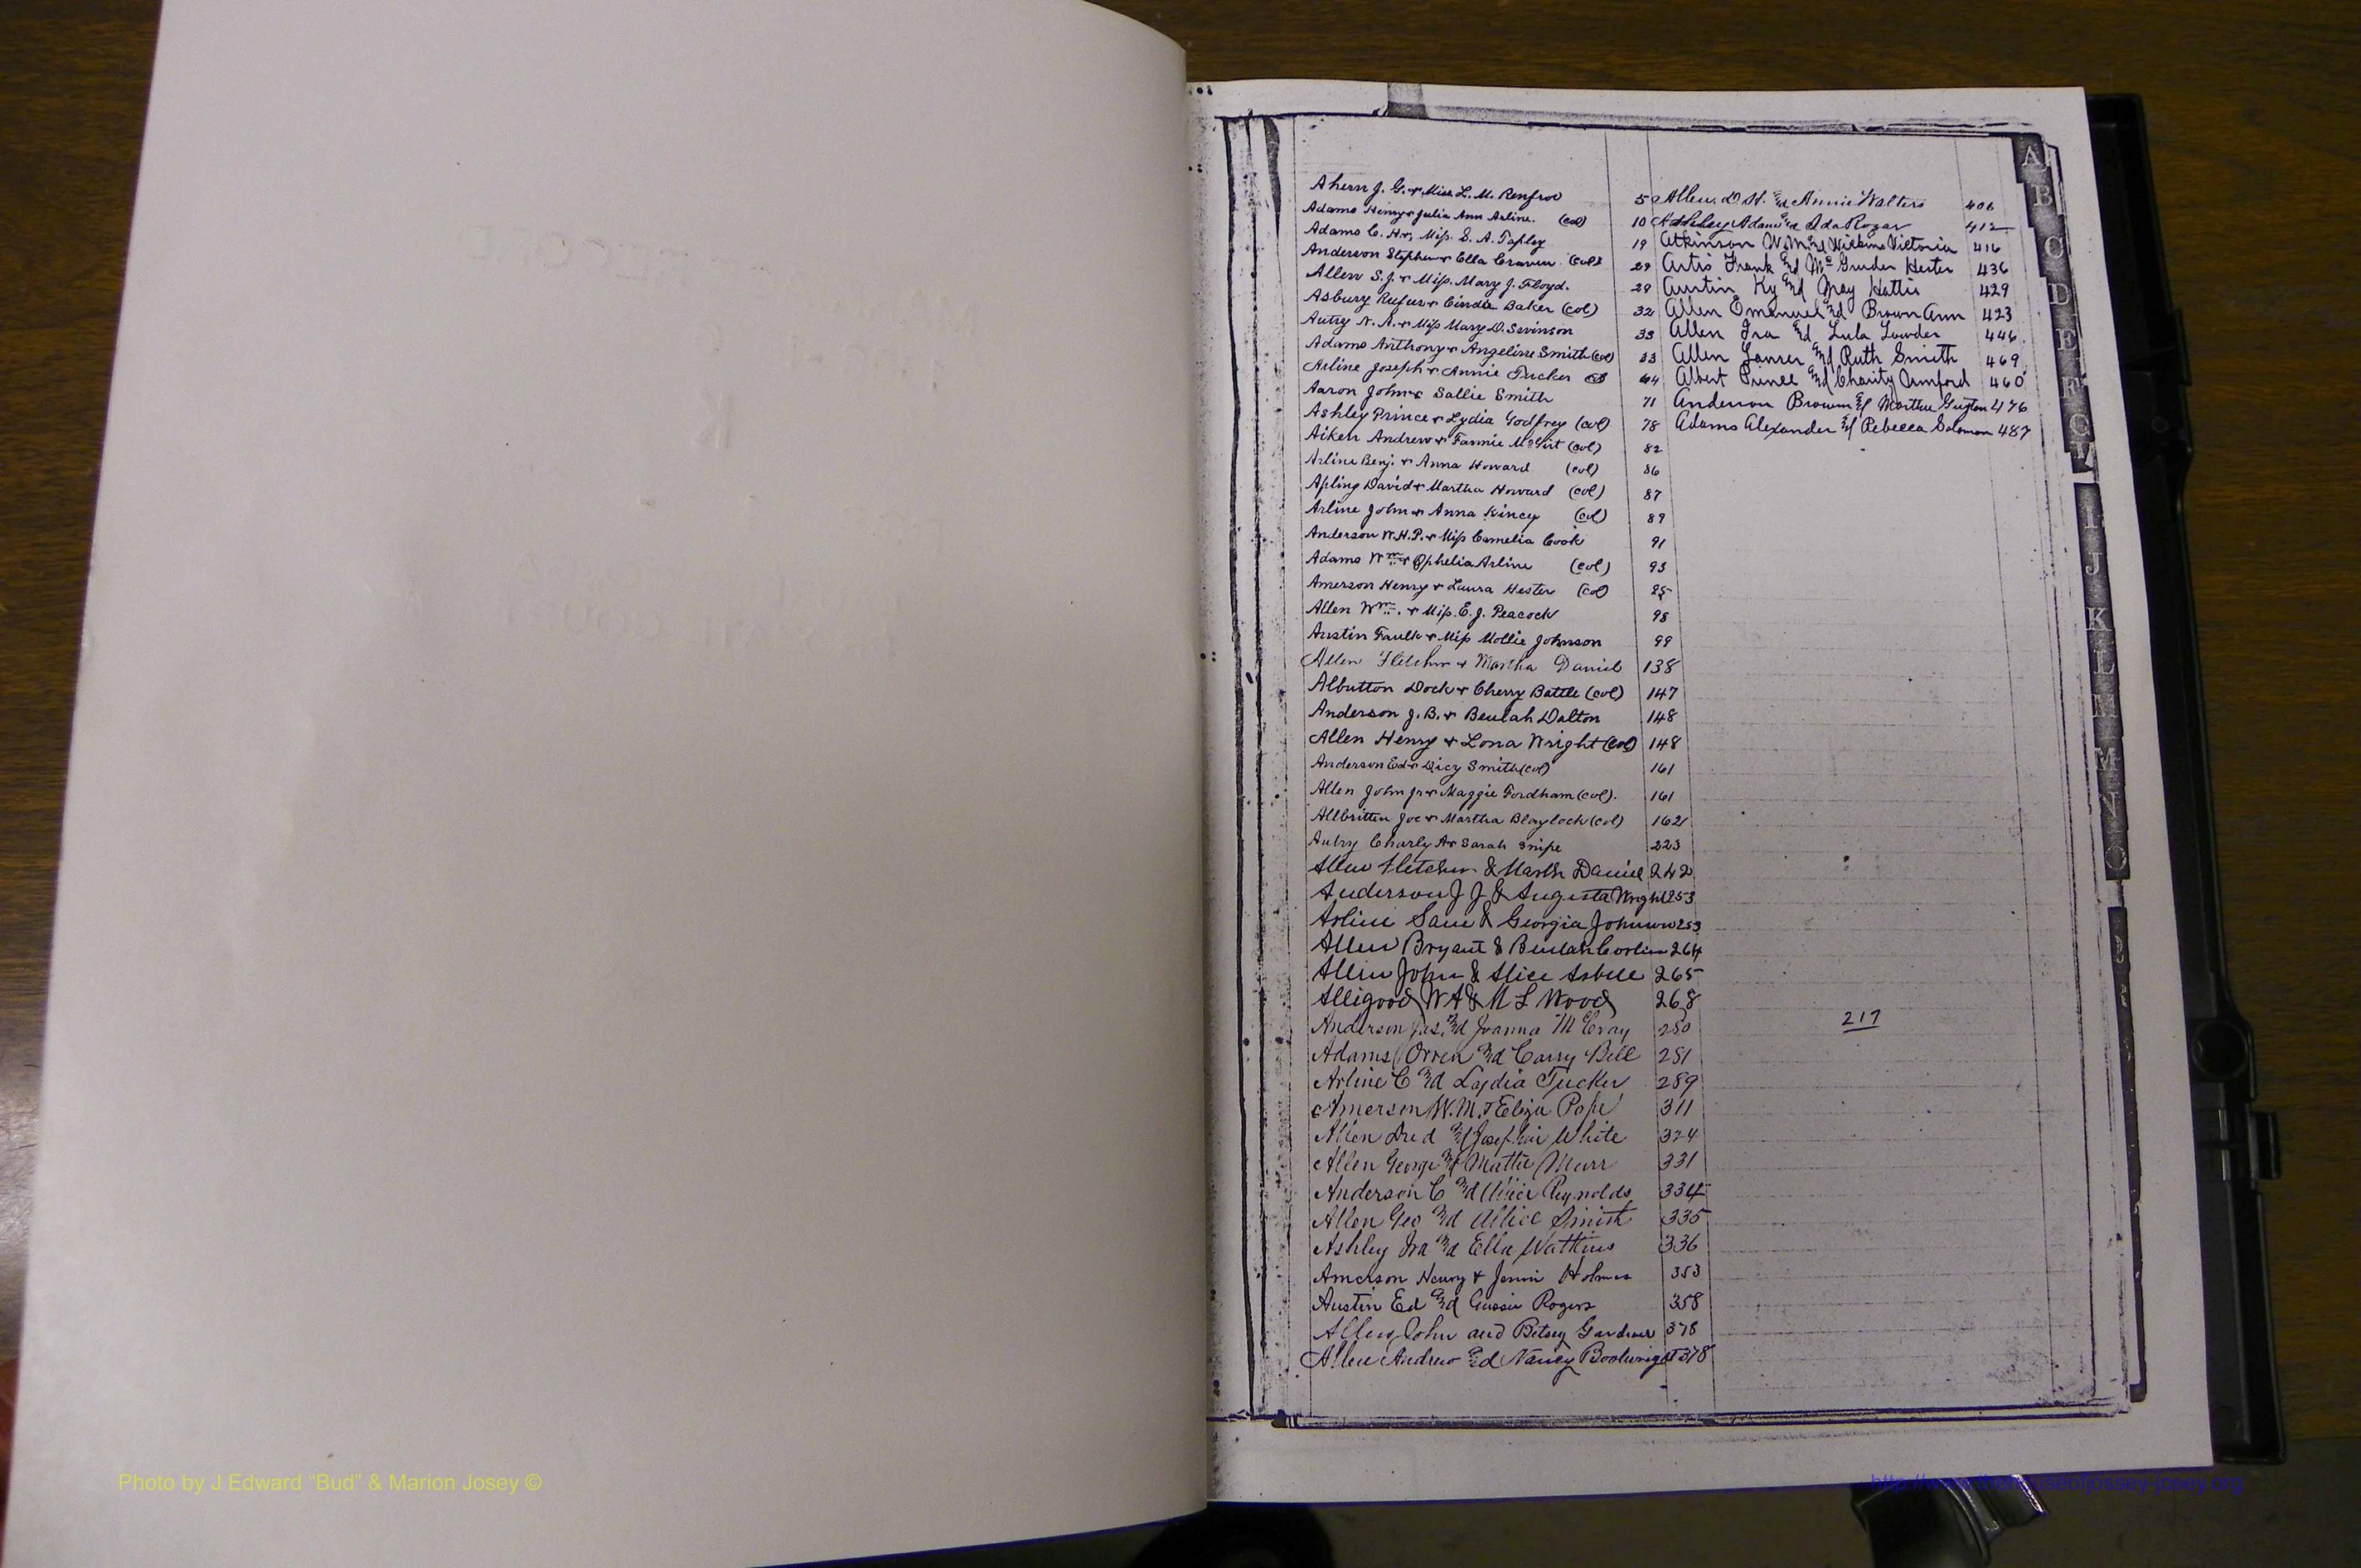 Ahern J. G. & Miss L. M. Renfroe 5
Adams Henry & Julia Ann Arline. (Col) 10
Adams C. H. & Miss. S. A. Tapley 19
Anderson Stephen & Ella Craven (Col)
Allen S. J. & Miss. Mary J. Floyd. 29
Asbury Rufus & Cinda Baker (Col) 32
Autry N. A. & Miss Mary D. Stevinson 33
Adams Anthony & Angeline Smith (Col) 33
Arline Joseph & Annie Tucker 64
Aaron John & Sallie Smith 71
Ashley Prince & Lydia Godfrey (Col) 78
Aiken Andrew & Fannie (Col) 82
Arline Benj. & Anna Howard (Col) 86
Apling David & Martha Howard (Col) 87
Arline John & Anna Kincey (Col) 89
Anderson W. H. P. & Miss Camelia Cook 91
Adams Wm. & Ophelia Arline (Col) 93
Amerson Henry & Laura Hester (Col) 95
Allen Wm. & Miss. E. J. Peacock 98
Austin Faulk & Miss Mollie Johnson 99
Allen Fletcher & Martha Daniel 138
Albutton Dock & Cherry Battle (Col) 147
Anderson J. B. & Beulah Dalton 148
Allen Henry & Lona Wright (Col) 148
Anderson Ed & Dicy Smith (Col) 161
Allen John Jr & Maggie Fordham (Col). 161
Allbritten Joe & Martha Blaylock (Col) 162
Autry Charly A & Sarah Snipe 223
Allen Fletcher & Marth Daniel 242
Anderson J J & Augusta Wright 253
Arline Sam & Georgia Johnson 253
Allen Bryant & Beulah 264
Allen John & Alice Asbell 265
Alligood W A & M L Wood 268
Anderson Jas. and Joanna 280
Adams Orren and Carry Bell 281
Arline C and Lydia Tucker 289
Amerson W. M. & Eliza Pope 311
Allen Dred and Josephine White 324
Allen George and Mattie Marr 331
Anderson C and Reynolds 334
Allen Geo and Allice Smith 335
Ashley Ira and Ella Watkins 336
Amerson Henry & Jennie Holmes 353
Austin Ed and Gussie Rogers 358
Allen John and Betsey Gardner 378
Allen Andrew and Nancy Boatwright 378
Allen. D. H. and Annie Walters 406
Ashley Adam and Ida Rozar 412
Atkinson W. M. and Wilkins Victoria 416
Artis Frank and McGruder Hester 436
Austin Ky and May Hattie 429
Allen Emanuel and Brown Ann 423
Allen Ira and Lula Lowder 446
Allen and Ruth Smith 469
Albert Prince and Charity 460
Anderson Brown and Martha 476
Adams Alexander and Rebecca Solomon 487
217
A
B
C
D
E
F
G
H
I
J
K
L
M
M
N
O
Photo by J Edward “Bud” & Marion Josey ©
http://www.thehouseofjossey-josey.org